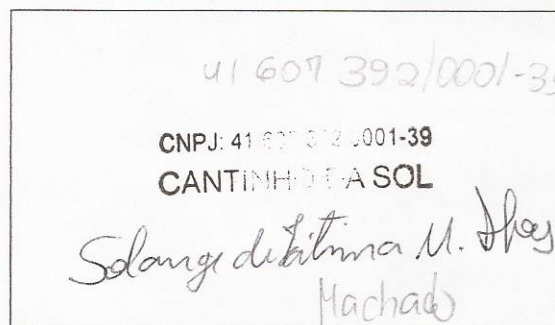 41 607 392/0001-39
CNPJ: 41 607 392 0001-39
CANTINHO DA SOL
Solange de Fátima M.
Machado